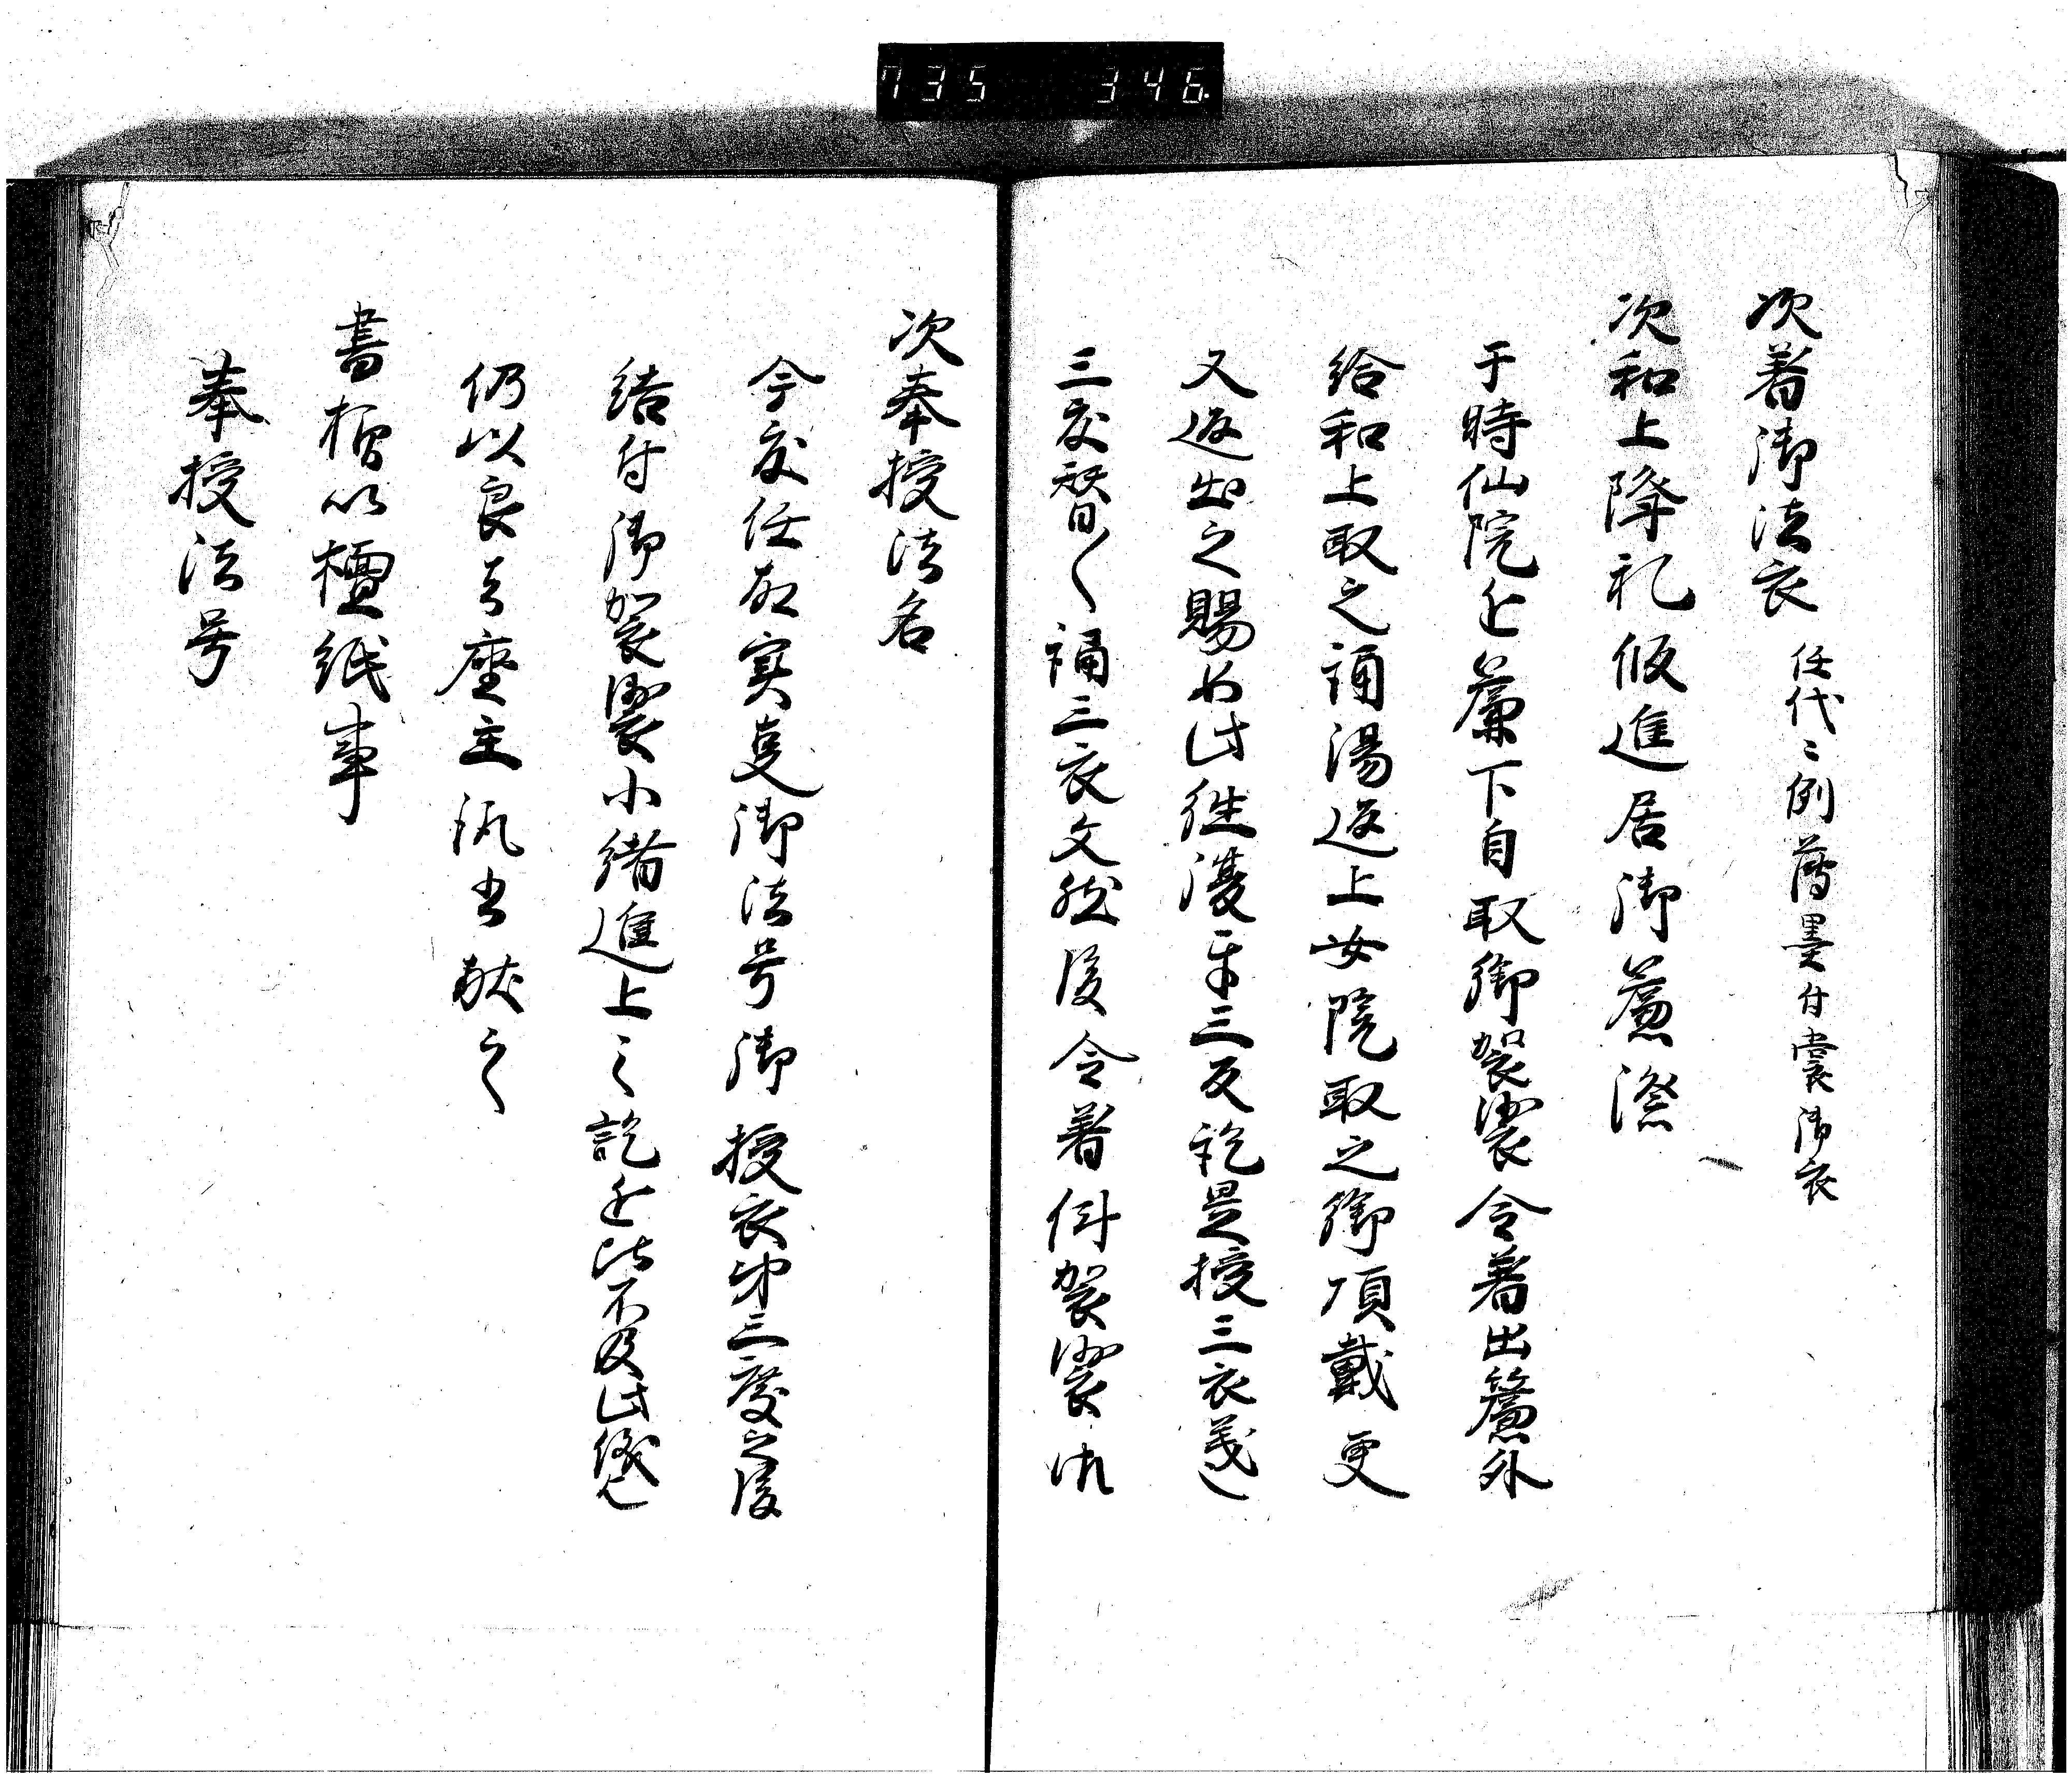 735 346
次着御法衣 任代々例薄墨付裳御衣
次和上降礼仮進居御簾際
于時仙院近簾下自取御袈裟令着出簾外
給和上取之誦湯返上女院取之御頂戴更
又返出之賜如此往渡事三反訖是授三衣義也
三反替々誦三衣文然後令着件袈裟御
次奉授法名
今度任故実兼御法号御授衣第三度之後
結付御袈裟小緒進上之訖近法不及此儀也
仍以良真座主説書献之
書檀以檀紙事
奉授法号